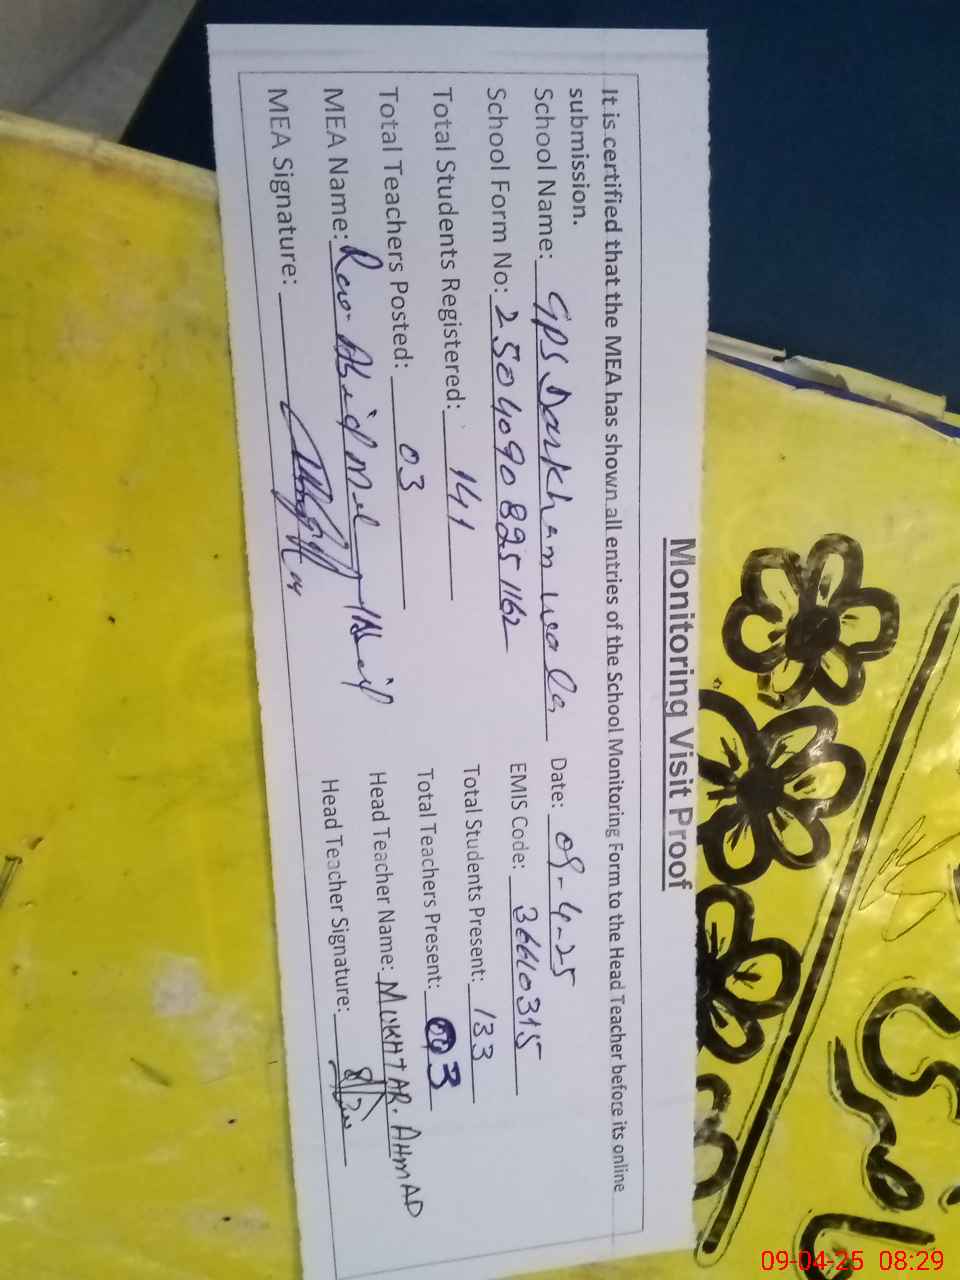 Monitoring Visit Proof
It is certified that the MEA has shown all entries of the School Monitoring Form to the Head Teacher before its online
submission.
School Name: GPS Darkhan wala Date: 09-4-25
School Form No: 25040908251162 EMIS Code: 36610315
Total Students Registered: 141 Total Students Present: 133
Total Teachers Posted: 03 Total Teachers Present: 03
MEA Name: Rao Abid Head Teacher Name: MUKHTAR. AHMAD
MEA Signature: Head Teacher Signature:
09-04-25 08:29